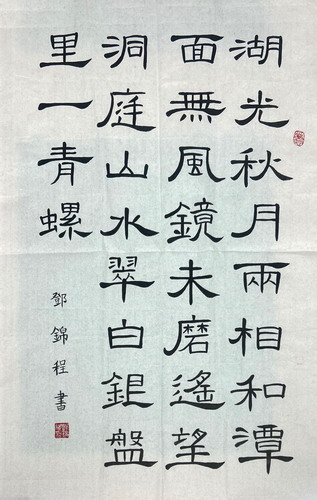 湖光秋月兩相和潭
面無風鏡未磨遙望
洞庭山水翠白銀盤
里一青螺
鄧錦程書